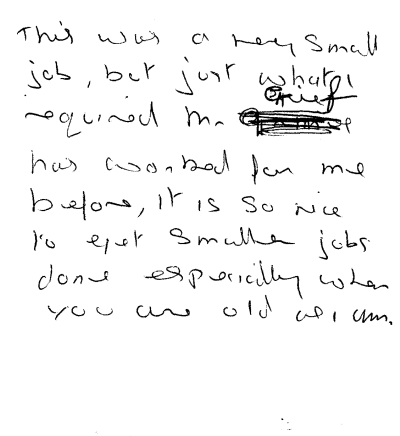 This was a very small
job, but just what I
required Mr. Grief
has worked for me
before, It is so nice
to get smaller jobs
done especially when
you are old as I am.